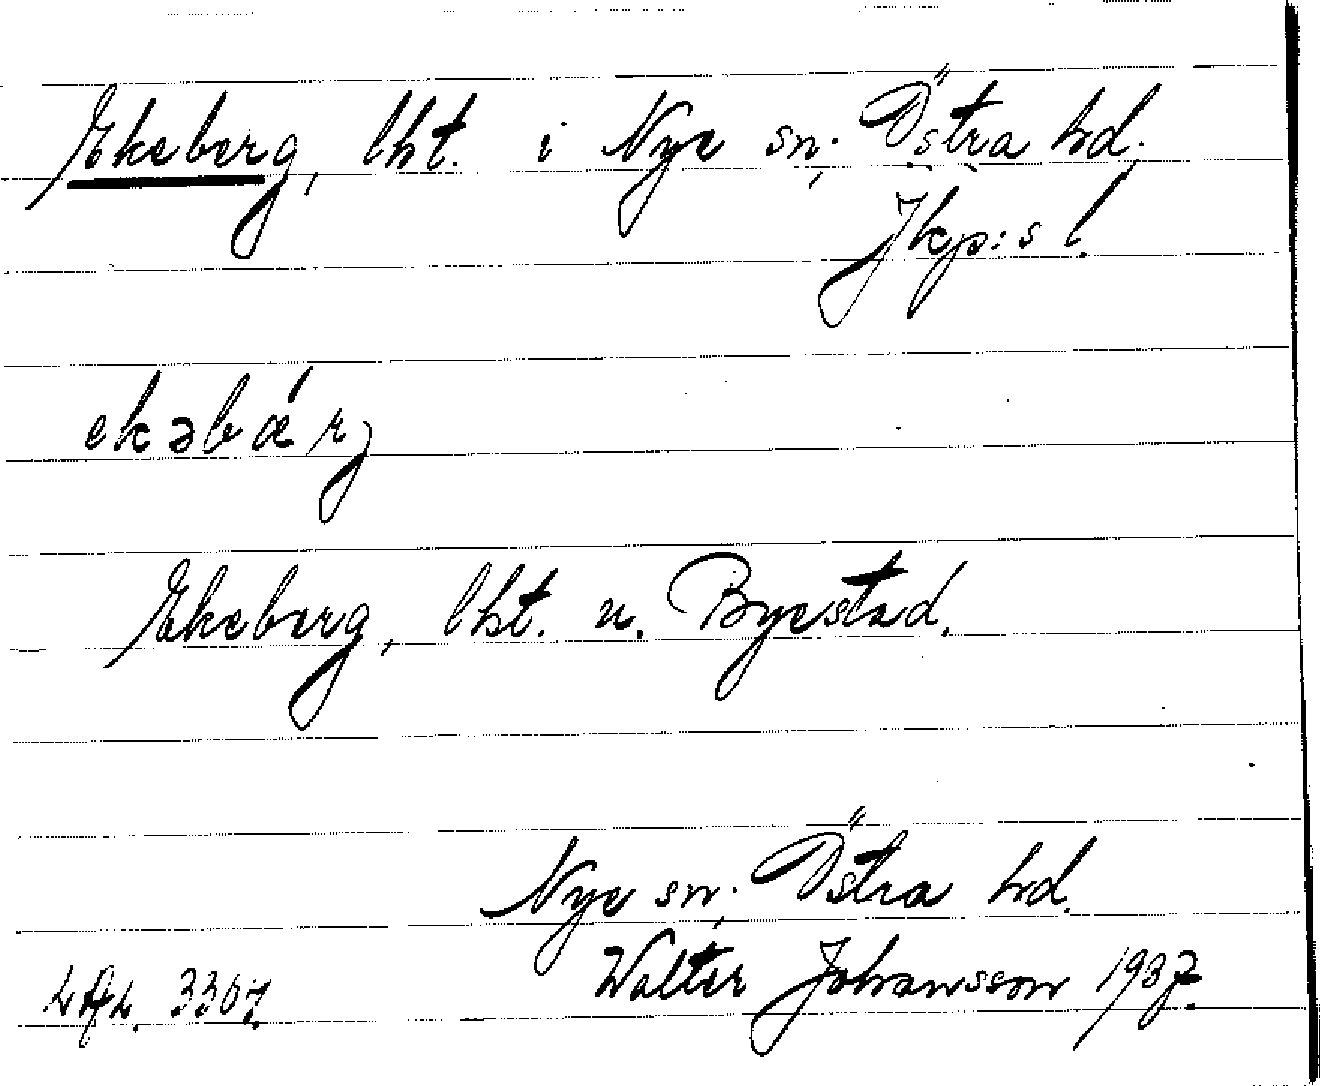 Ekeberg, lht. i Nye sn; Östra hd.
Jkp:s l.
ekəbǽrj
Ekeberg, lht. u. Byestad.
Nye sn; Östra hd.
Walter Johansson 1937.
3307.